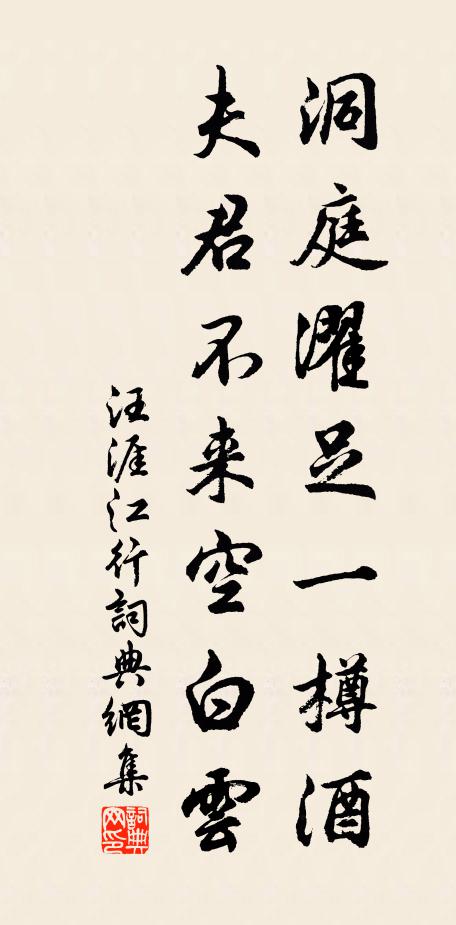 洞庭濯足一樽酒
夫君不来空白雲
汪涯江行詞典網集
詞典网印